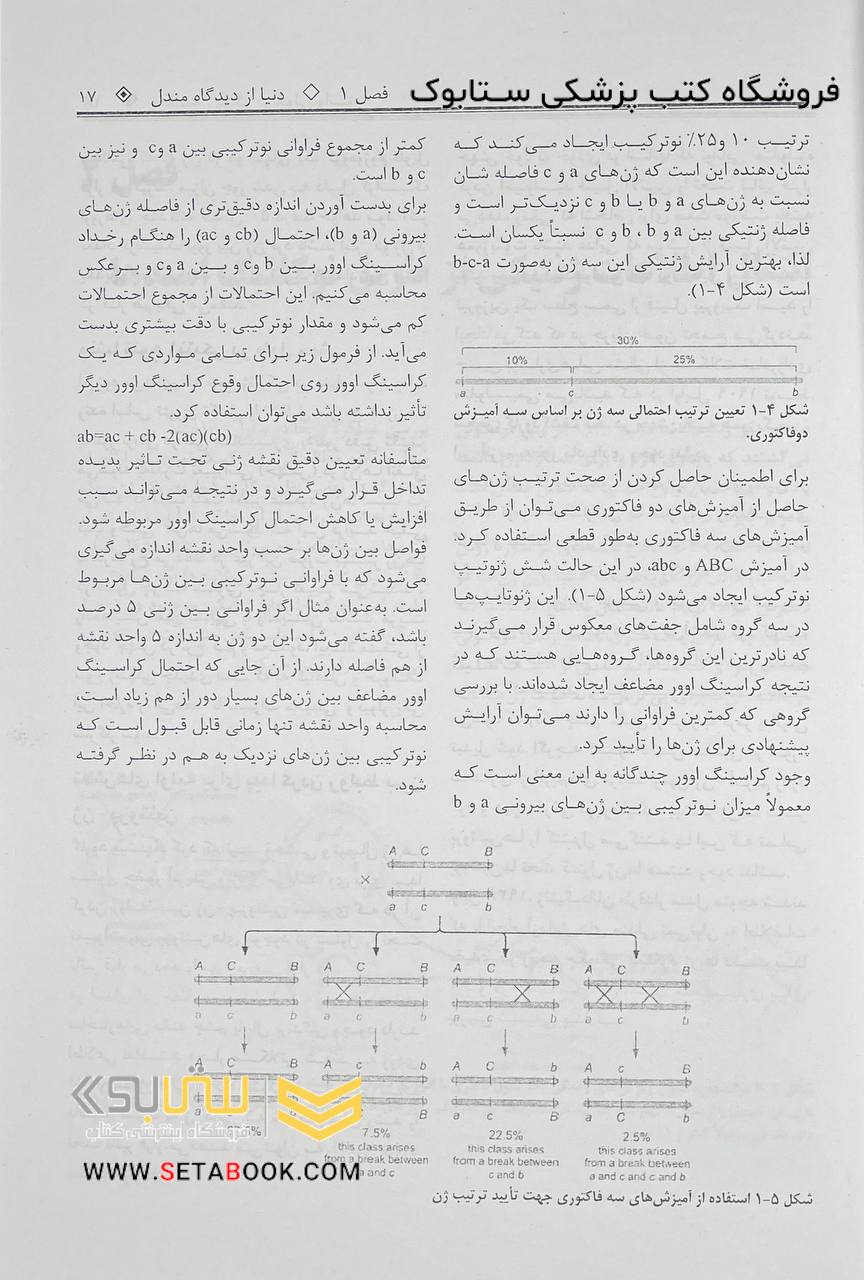 فروشگاه کتب پزشکی ستابوک
فصل ۱ ◇ دنیا از دیدگاه مندل ۱۷
ترتیب ۱۰ و۲۵٪ نوترکیب ایجاد می‌کند که
نشان‌دهنده این است که ژن‌های a و c فاصله شان
نسبت به ژن‌های a و b یا b و c نزدیک‌تر است و
فاصله ژنتیکی بین a و b ، b و c نسبتاً یکسان است.
لذا، بهترین آرایش ژنتیکی این سه ژن به‌صورت b-c-a
است (شکل ۴-۱).
30%
10% 25%
a c b
شکل ۴-۱ تعیین ترتیب احتمالی سه ژن بر اساس سه آمیزش
دوفاکتوری.
برای اطمینان حاصل کردن از صحت ترتیب ژن‌های
حاصل از آمیزش‌های دو فاکتوری می‌توان از طریق
آمیزش‌های سه فاکتوری به‌طور قطعی استفاده کرد.
در آمیزش ABC و abc، در این حالت شش ژنوتیپ
نوترکیب ایجاد می‌شود (شکل ۵-۱). این ژنوتایپ‌ها
در سه گروه شامل جفت‌های معکوس قرار می‌گیرند
که نادرترین این گروه‌ها، گروه‌هایی هستند که در
نتیجه کراسینگ اوور مضاعف ایجاد شده‌اند. با بررسی
گروهی که کمترین فراوانی را دارند می‌توان آرایش
پیشنهادی برای ژن‌ها را تأیید کرد.
وجود کراسینگ اوور چندگانه به این معنی است که
معمولاً میزان نوترکیبی بین ژن‌های بیرونی a و b
کمتر از مجموع فراوانی نوترکیبی بین a وc و نیز بین
c و b است.
برای بدست آوردن اندازه دقیق‌تری از فاصله ژن‌های
بیرونی (a و b)، احتمال (cb و ac) را هنگام رخداد
کراسینگ اوور بین b وc و بین a وc و برعکس
محاسبه می‌کنیم. این احتمالات از مجموع احتمالات
کم می‌شود و مقدار نوترکیبی با دقت بیشتری بدست
می‌آید. از فرمول زیر برای تمامی مواردی که یک
کراسینگ اوور روی احتمال وقوع کراسینگ اوور دیگر
تأثیر نداشته باشد می‌توان استفاده کرد.
ab=ac + cb -2(ac)(cb)
متأسفانه تعیین دقیق نقشه ژنی تحت تاثیر پدیده
تداخل قرار می‌گیرد و در نتیجه می‌تواند سبب
افزایش یا کاهش احتمال کراسینگ اوور مربوطه شود.
فواصل بین ژن‌ها بر حسب واحد نقشه اندازه می‌گیری
می‌شود که با فراوانی نوترکیبی بین ژن‌ها مربوط
است. به‌عنوان مثال اگر فراوانی بین ژنی ۵ درصد
باشد، گفته می‌شود این دو ژن به اندازه ۵ واحد نقشه
از هم فاصله دارند. از آن جایی که احتمال کراسینگ
اوور مضاعف بین ژن‌های بسیار دور از هم زیاد است،
محاسبه واحد نقشه تنها زمانی قابل قبول است که
نوترکیبی بین ژن‌های نزدیک به هم در نظر گرفته
شود.
A C B
×
a c b
A C B A C B A C B A C B
a c b a c b a c b a c b
A C B A c b A C b A c B
a c b a B a c B a C b
7.5% 22.5% 2.5%
this class arises this class arises this class arises
from a break between from a break between from a break between
a and c c and b a and c and c and b
ستابوک
فروشگاه اینترنتی کتاب
WWW.SETABOOK.COM
شکل ۵-۱ استفاده از آمیزش‌های سه فاکتوری جهت تأیید ترتیب ژن